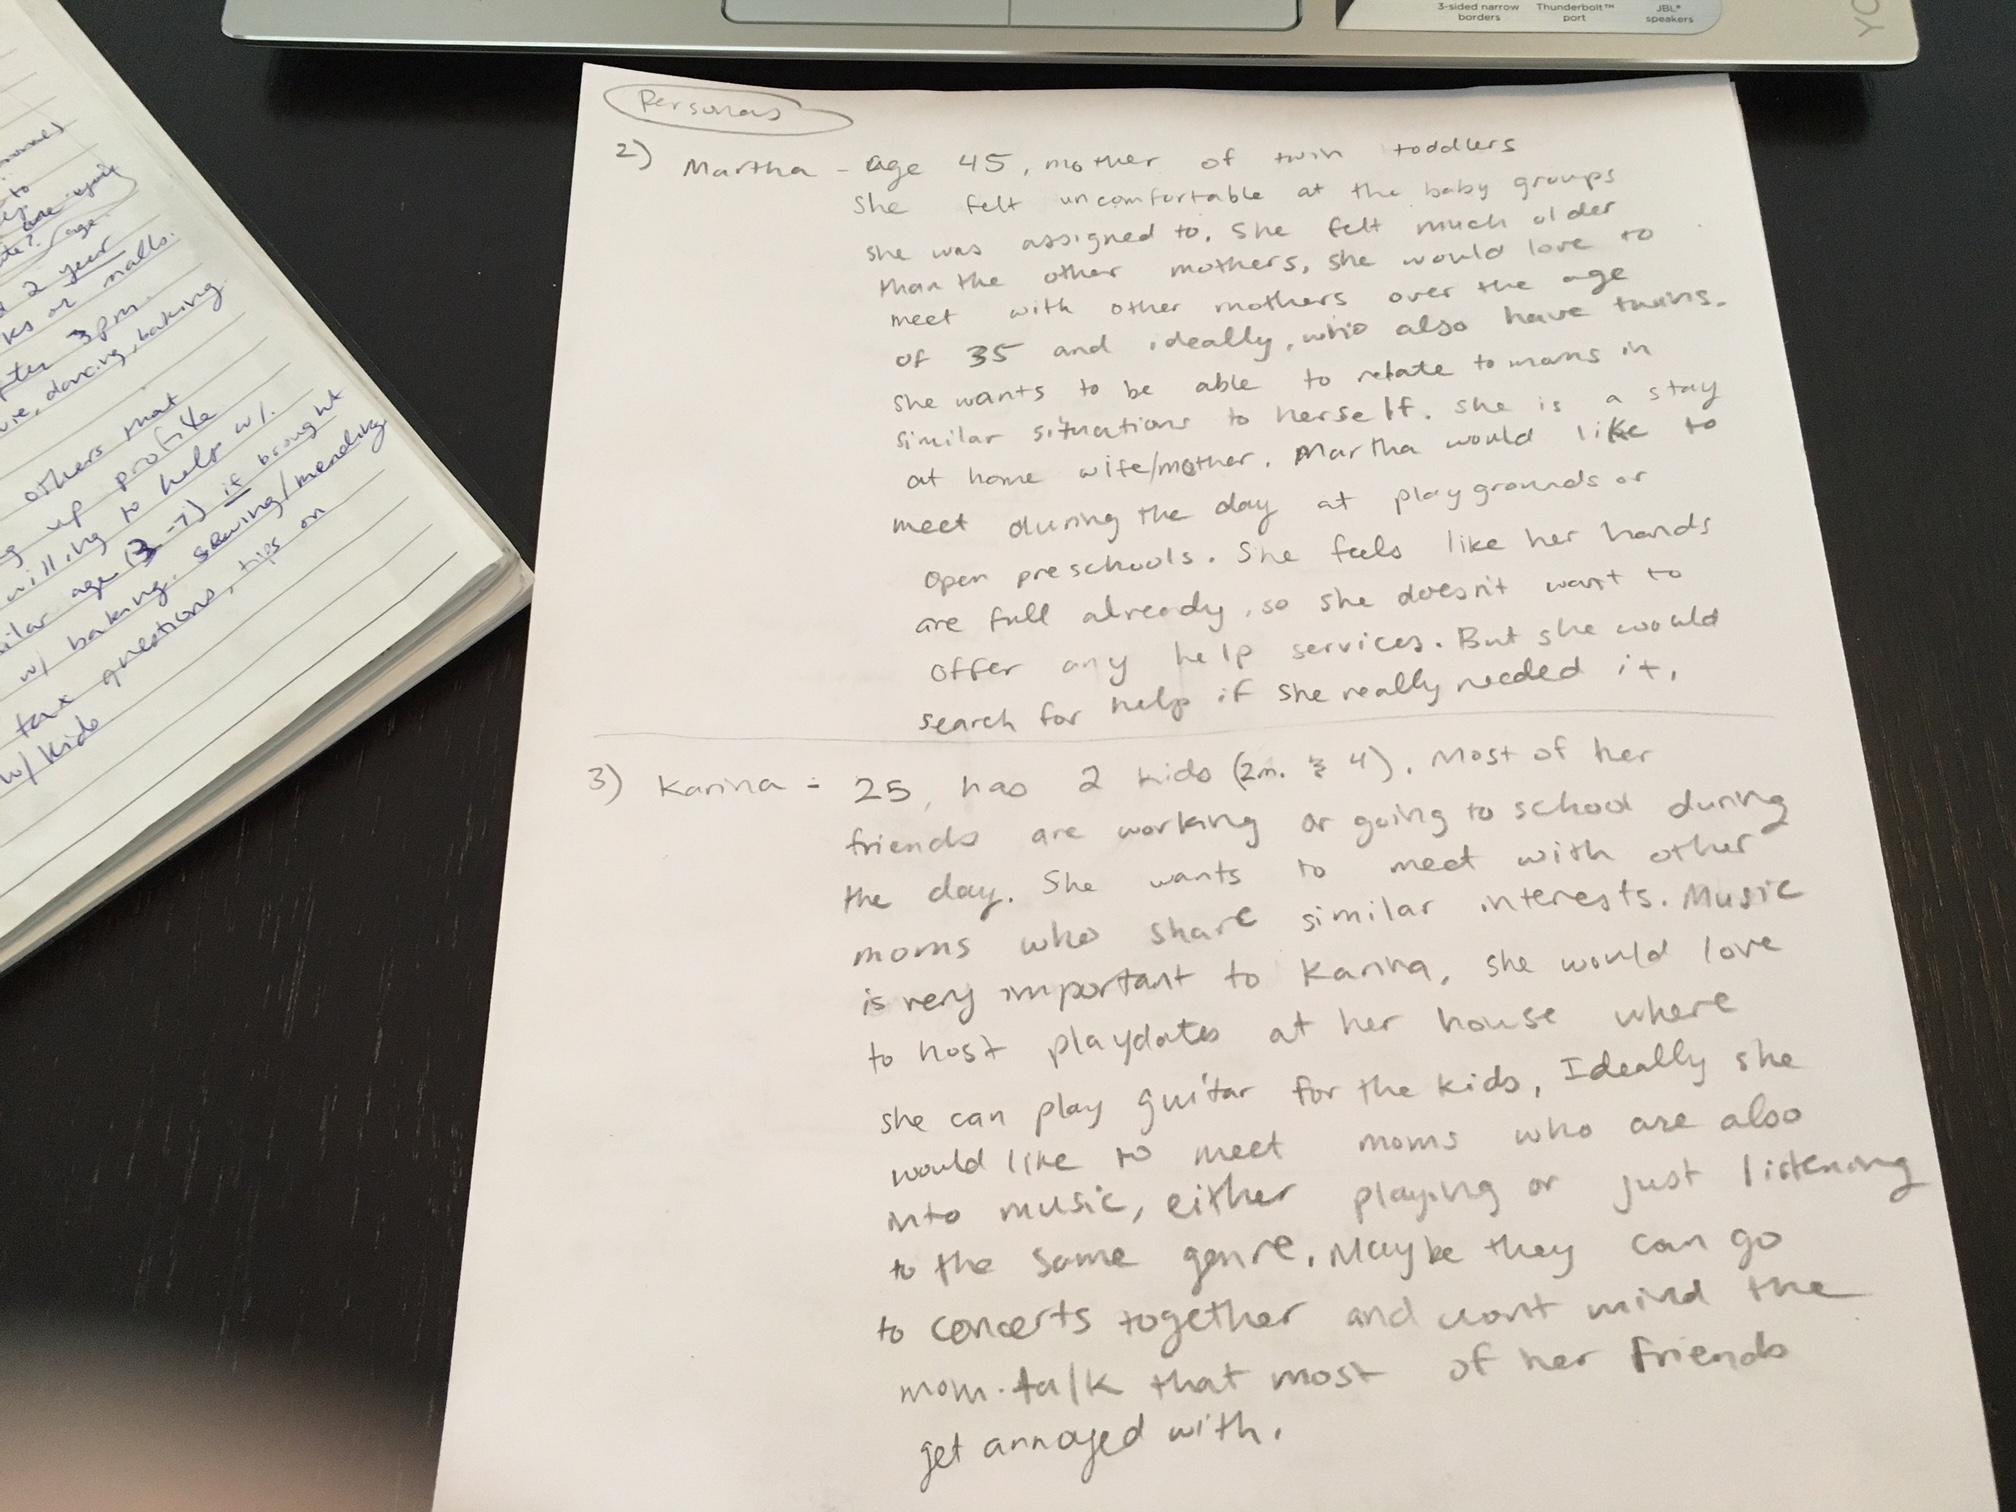 Personas
2) Martha - age 45, mother of twin toddlers
She felt uncomfortable at the baby groups
she was assigned to. She felt much older
than the other mothers, she would love to
meet with other mothers over the age
of 35 and ideally, who also have twins.
She wants to be able to relate to moms in
similar situations to herself. She is a stay
at home wife/mother. Martha would like to
meet during the day at playgrounds or
open preschools. She feels like her hands
are full already, so she doesn't want to
offer any help services. But she would
search for help if she really needed it.
3) Karina - 25, has 2 kids (2m. & 4). Most of her
friends are working or going to school during
the day. She wants to meet with other
moms who share similar interests. Music
is very important to Karina, she would love
to host playdates at her house where
she can play guitar for the kids. Ideally she
would like to meet moms who are also
into music, either playing or just listening
to the same genre. Maybe they can go
to concerts together and wont mind the
mom-talk that most of her friends
get annoyed with.
2 year
3pm.
dancing, baking
others that
up profile
willing to help w/.
age (3-7) is brought
w/ baking, sewing/mending
tax questions, tips on
w/ kids
3-sided narrow borders
Thunderbolt™ port
JBL® speakers
YO